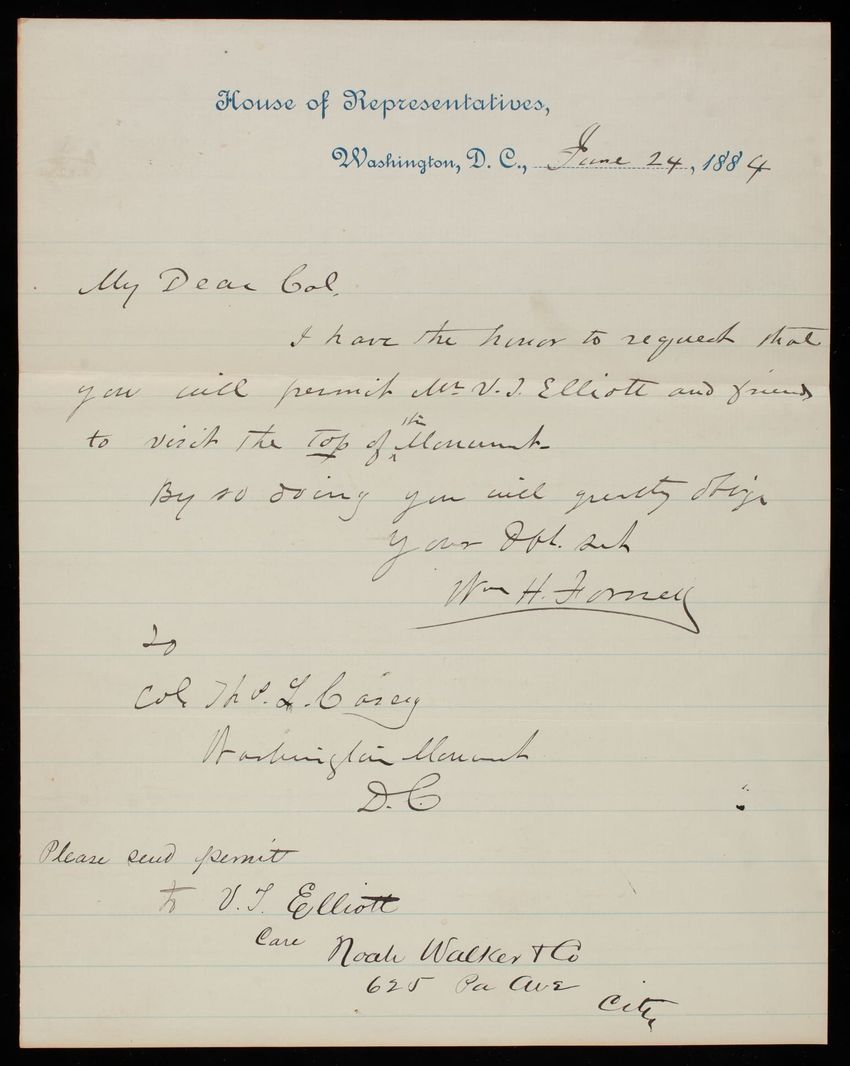 House of Representatives,
Washington, D. C., June 24, 1884
My Dear Col,
I have the honor to request that
you will permit Mr V. T. Elliott and friends
to visit the top of the Monument-
By so doing you will greatly oblige
Your Obt. svt
Wm H. Forney
To
Col Thos. L. Casey
Washington Monument
D.C
Please send permit
to V. T. Elliott
Care Noah Walker & Co
625 Pa Ave
City